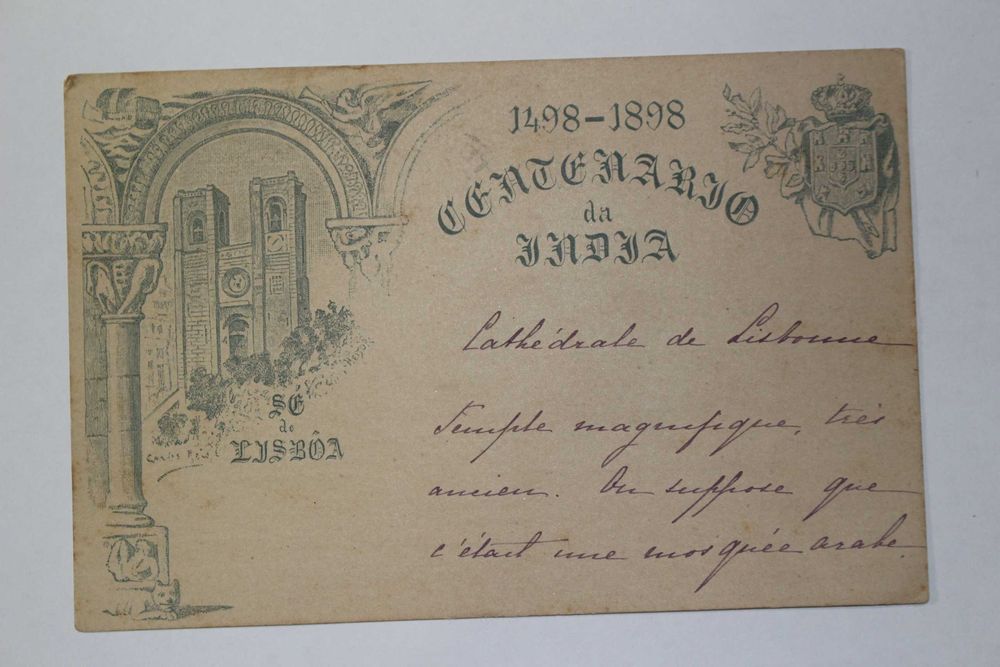 1498-1898
CENTENARIO
da
INDIA
Cathédrale de Lisbonne
Temple magnifique, très
ancien. On suppose que
c'était une mosquée arabe.
SÉ
de
LISBÔA
Carlos